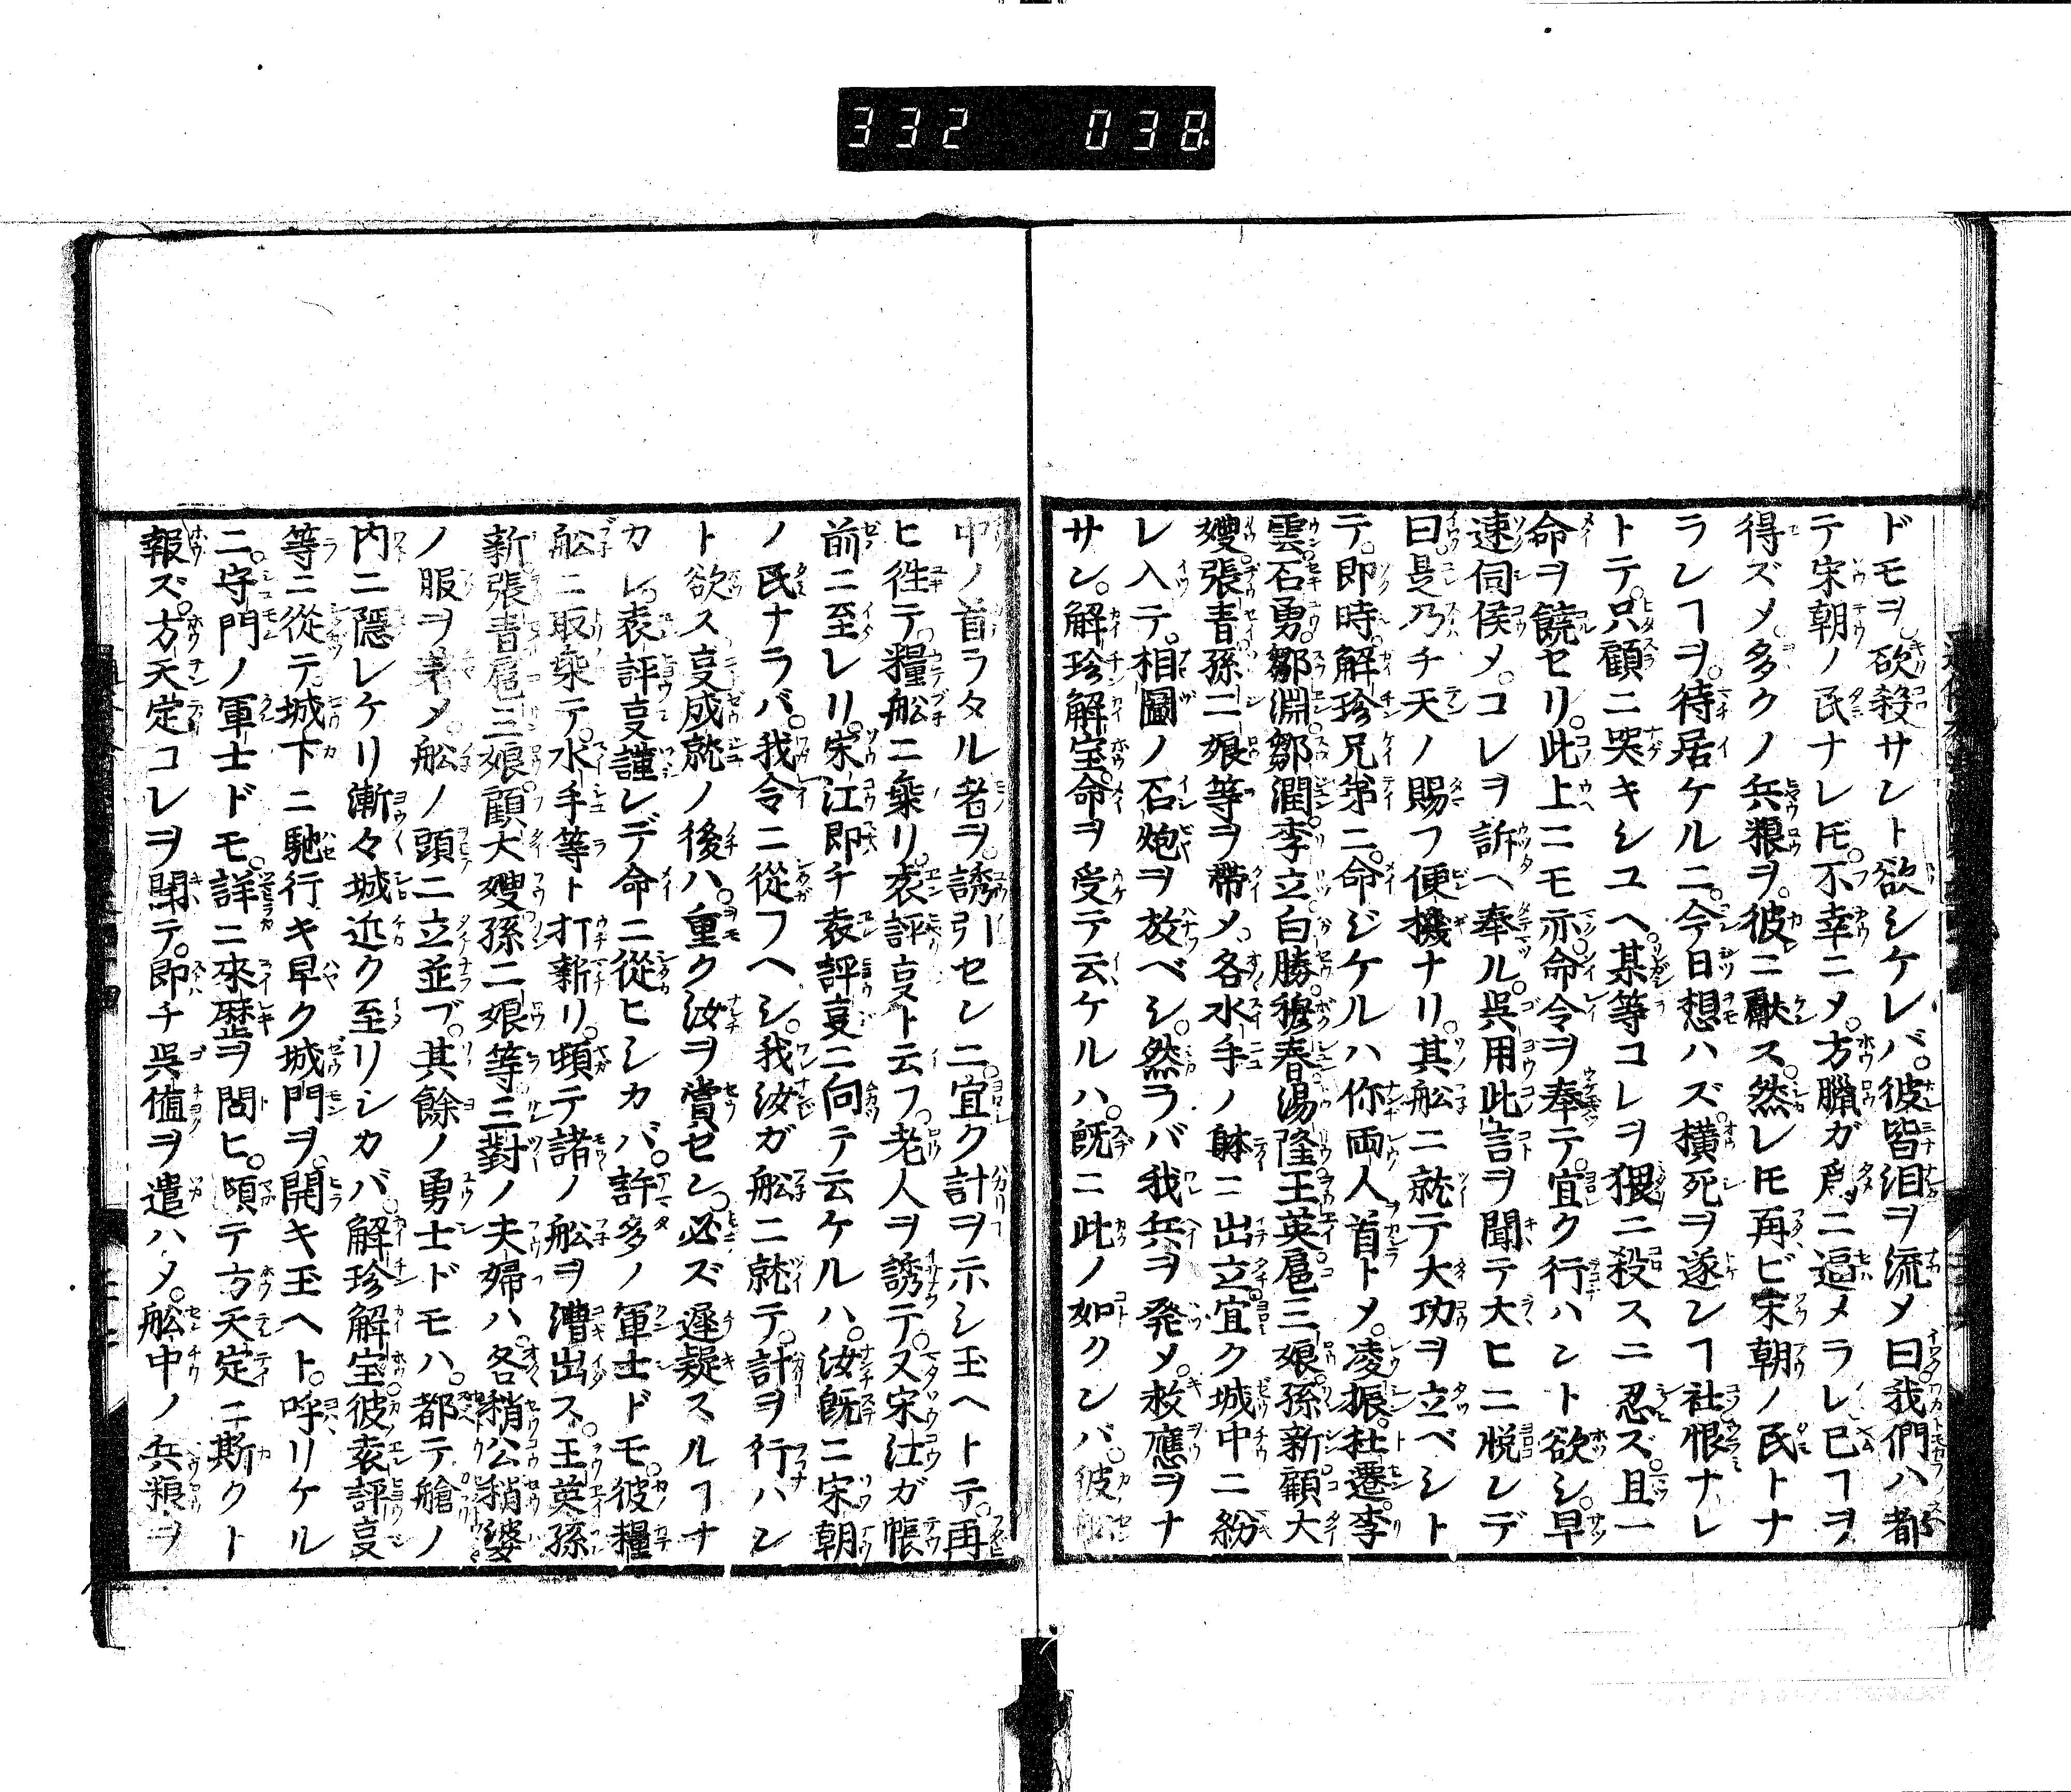 332 038
ドモヲ砍殺サント欲シケレバ。彼皆泪ヲ流メ曰我們ハ都
テ宋朝ノ民ナレ𪜈。不幸ニメ。方臘ガ爲ニ逼メラレ已ヿヲ
得ズメ。多クノ兵粮ヲ。彼ニ獻ス。然レ𪜈再ビ宋朝ノ民トナ
ランヿヲ。待居ケルニ。今日想ハズ横死ヲ遂ンヿ社恨ナレ
トテ。只顧ニ哭キシユヘ。某等コレヲ猥ニ殺スニ忍ズ。且一
命ヲ饒セリ。此上ニモ亦命令ヲ奉テ。宜ク行ハント欲シ。早
速伺侯メ。コレヲ訴ヘ奉ル。呉用此言ヲ聞テ大ヒニ悦ンデ
曰。是乃チ天ノ賜フ便機ナリ。其舩ニ就テ大功ヲ立ベシト
テ。即時解珍兄弟ニ。命ジケルハ你両人首トメ。凌振。杜遷。李
雲。石勇。鄒淵。鄒潤。李立。白勝。穆春。湯隆。王英。扈三娘。孫新。顧大
嫂。張青。孫二娘等ヲ帶メ。各水手ノ躰ニ出立。宜ク城中ニ紛
レ入テ。相圖ノ石炮ヲ放ベシ。然ラバ我兵ヲ発メ。救應ヲナ
サン。解珍解宝。命ヲ受テ云ケルハ。既ニ此ノ如クンバ。彼舩
中ノ首ラタル者ヲ。誘引セシニ。宜ク計ヲ示シ玉ヘトテ。再
ヒ徃テ。糧舩ニ乗リ。袁評叓ト云フ。老人ヲ誘テ。又宋江ガ帳
前ニ至レリ。宋江即チ袁評叓ニ向テ云ケルハ。汝既ニ宋朝
ノ民ナラバ。我令ニ從フヘシ。我汝ガ舩ニ就テ。計ヲ行ハン
ト欲ス叓成就ノ後ハ。重ク汝ヲ賞セン。必ズ遲疑スルヿナ
カレ。袁評叓謹ンデ命ニ從ヒシカバ。許多ノ軍士ドモ。彼糧
舩ニ取乗テ。水手等ト打新リ。頓テ諸ノ舩ヲ漕出ス。王英孫
新張青扈三娘顧大嫂孫二娘等三對ノ夫婦ハ。各稍公稍婆
ノ服ヲ着メ。舩ノ頭ニ立並ブ。其餘ノ勇士ドモハ。都テ艙ノ
内ニ隱レケリ漸々城近ク至リシカバ。解珍解宝彼袁評叓
等ニ從テ。城下ニ馳行キ早ク城門ヲ。開キ玉ヘト。呼リケル
ニ。守門ノ軍士ドモ。詳ニ來歴ヲ問ヒ。頓テ方天定ニ斯クト
報ズ。方天定コレヲ聞テ。即チ呉値ヲ遣ハメ。舩中ノ兵粮ヲ